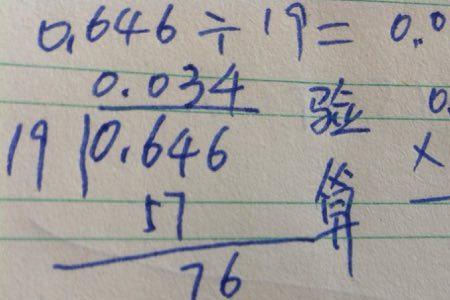 0.646÷19=0.0
0.034 验 0.
19 0.646 ×
57 算
76